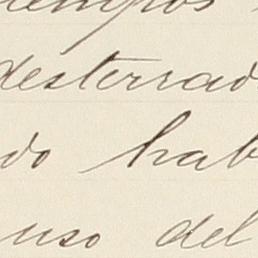 tiempos
desterrad
do hab
uso del